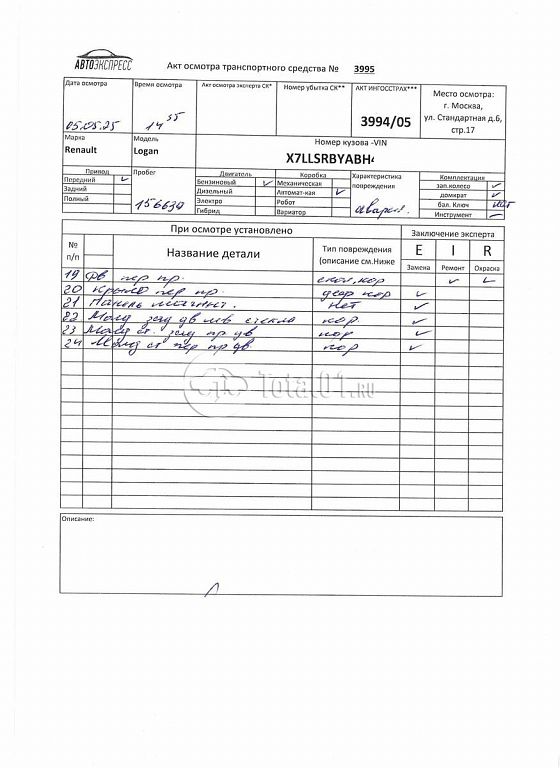 АВТОЭКСПРЕСС
Акт осмотра транспортного средства № 3995
Дата осмотра
05.05.25
Время осмотра
14 55
Акт осмотра эксперта СК*
Номер убытка СК**
АКТ ИНГОССТРАХ***
3994/05
Место осмотра:
г. Москва,
ул. Стандартная д.6,
стр.17
Марка
Renault
Модель
Logan
Номер кузова -VIN
X7LLSRBYABH
Привод
Передний ✓
Задний
Полный
Пробег
Двигатель
Бензиновый ✓
Дизельный
Электро
Гибрид
Коробка
Механическая
Автомат-кая ✓
Робот
Вариатор
Характеристика
повреждения
аварий
Комплектация
зап.колесо ✓
домкрат ✓
бал. Ключ нет
Инструмент –
При осмотре установлено
Заключение эксперта
№
п/п
Название детали
Тип повреждения
(описание см.Ниже
E I R
Замена Ремонт Окраска
19 Дв пер пр. скол, кор ✓ ✓
20 Крыло пер пр. деф кор ✓
21 Панель магнит. нет ✓
22 Молд зад дв лев стекла кор. ✓
23 Молд ст. зад пр дв кор ✓
24 Молд ст пер пр дв кор ✓
Total01.RU
Описание: